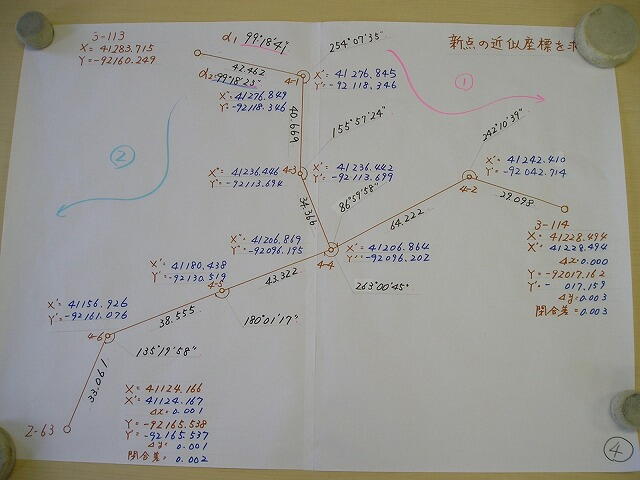 3-113
X= 41283.715
Y=-92160.249
α1 99°18'41"
254°07'35"
新点の近似座標を求
42.462
α2=99°18'23"
4-1
X'= 41276.845
Y'=-92118.346
①
X"= 41276.849
Y"=-92118.346
40.669
155°57'24"
242°10'39"
②
X"= 41236.446
Y"= -92113.694
4-3
X'= 41236.442
Y'=-92113.699
X'= 41242.410
Y'= -92042.714
4-2
34.366
86°59'58"
64.222
29.098
3-114
X= 41228.494
X'= 41228.494
Δx=0.000
Y=-92017.162
Y'=- 017.159
Δy=0.003
閉合差=0.003
X"= 41206.869
Y"= -92096.195
4-4
X'= 41206.864
Y'= -92096.202
X'= 41180.438
Y'=-92130.519
4-5
43.322
263°00'45"
X'= 41156.926
Y'=-92161.076
4-6
38.555
180°01'17"
135°19'58"
33.061
2-63
X= 41124.166
X'= 41124.167
Δx=0.001
Y=-92165.538
Y'=-92165.537
Δy=0.001
閉合差= 0.002
④